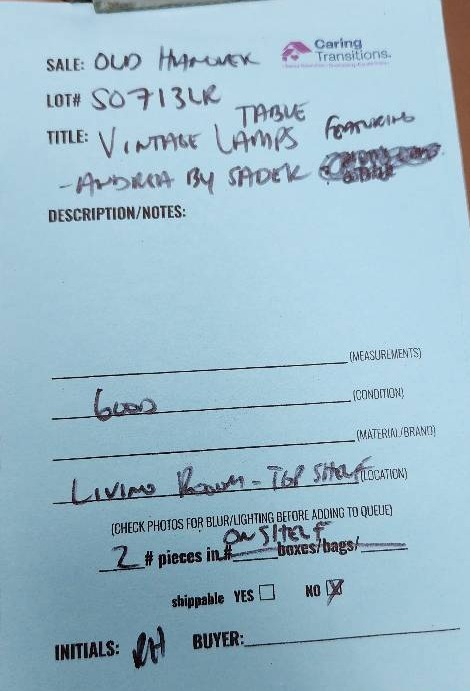 SALE: OLD HANOVER
Caring
Transitions
LOT# SO713LR
TABLE
TITLE: VINTAGE LAMPS FEATURING
- ANDREA BY SADEK
DESCRIPTION/NOTES:
(MEASUREMENTS)
GOOD (CONDITION)
(MATERIAL/BRAND)
LIVING ROOM - TOP SHELF (LOCATION)
(CHECK PHOTOS FOR BLUR/LIGHTING BEFORE ADDING TO QUEUE)
ON SHELF
2 # pieces in # boxes/bags/
shippable YES ☐ NO ☒
INITIALS: RH BUYER: